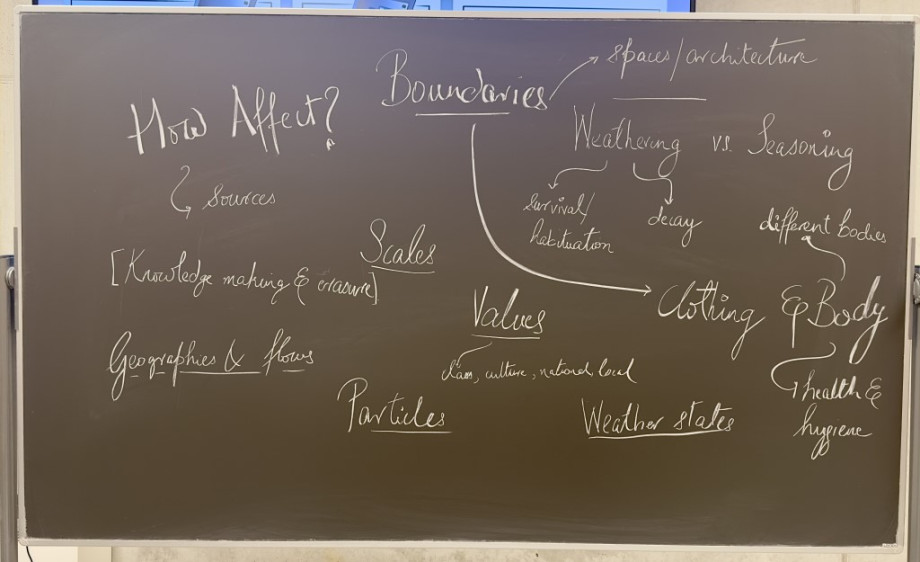 Boundaries
spaces/architecture
How Affect?
sources
Weathering vs. Seasoning
survival/
habituation
decay
different bodies
Scales
[Knowledge making & erasure]
Clothing & Body
Values
class, culture, national, local
Geographies & flows
health &
hygiene
Particles
Weather states